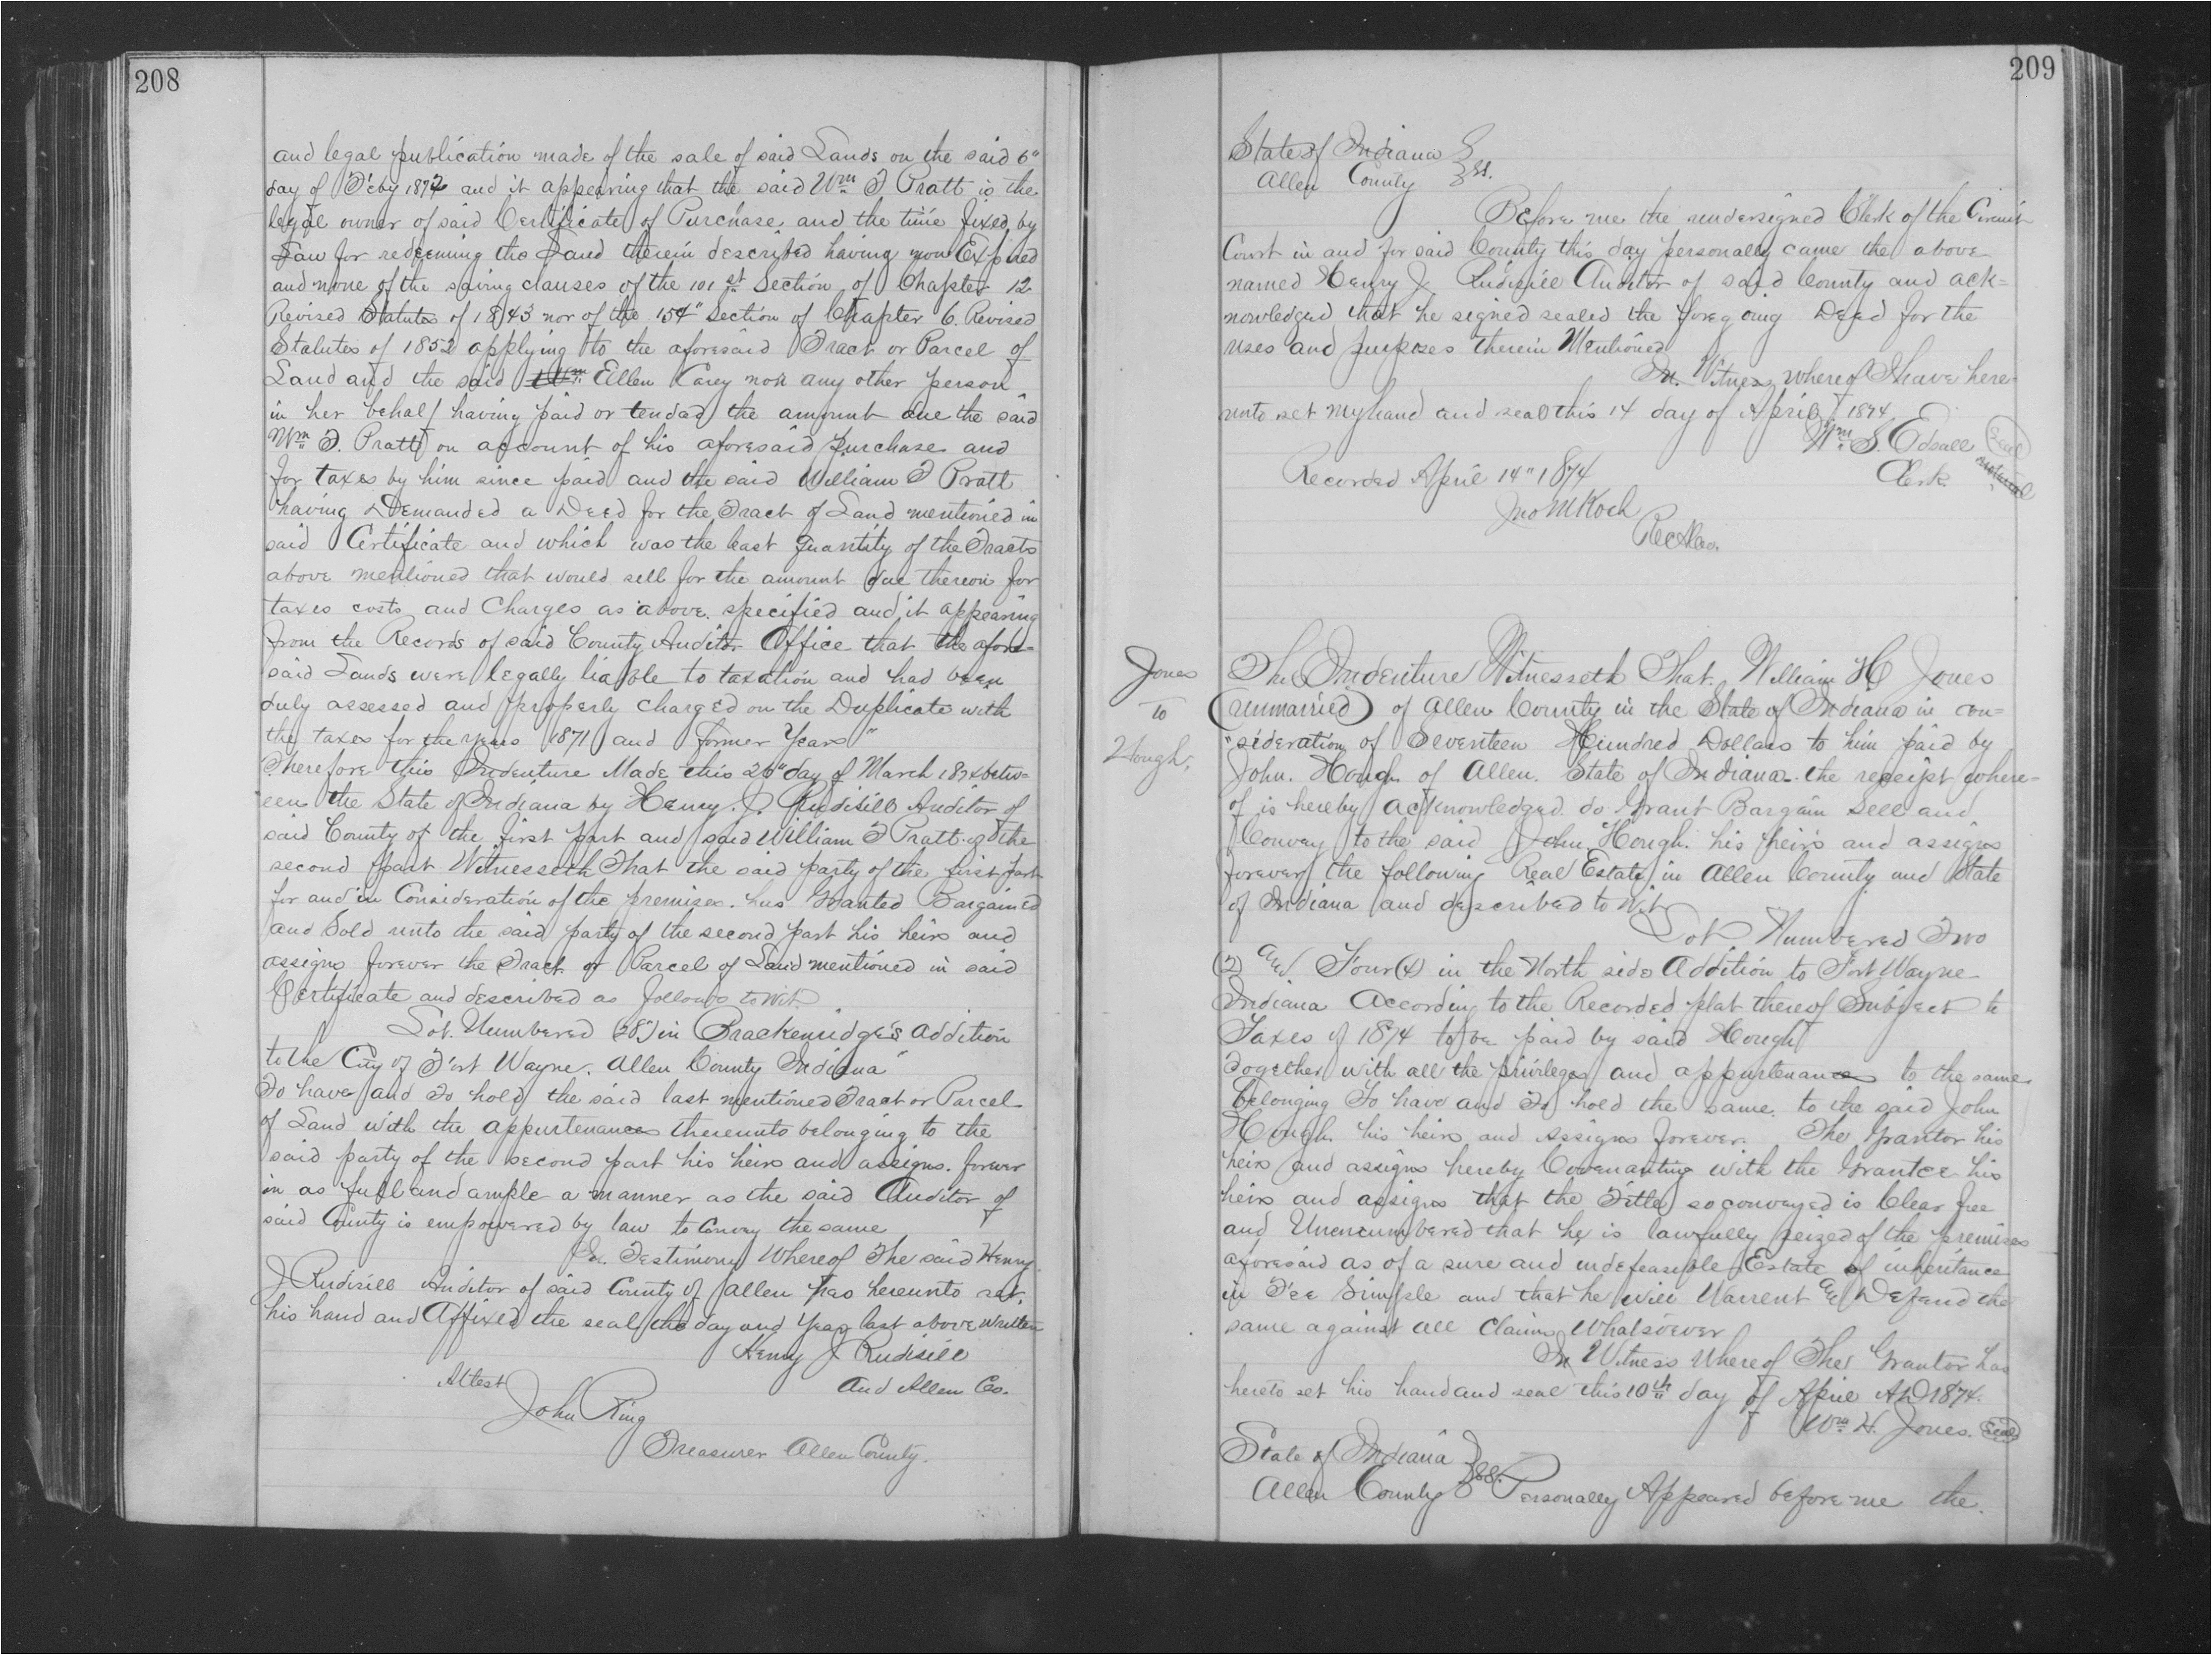 208
and legal publication made of the sale of said Lands on the said 6"
day of Feby 1872 and it appearing that the said Wm T Pratt is the
legal owner of said Certificate of Purchase and the time fixed by
Law for redeeming the Land therein described having now Expired
and none of the saving clauses of the 101st Section of Chapter 12
Revised Statutes of 1843 nor of the 154" Section of Chapter 6. Revised
Statutes of 1852 applying to the aforesaid Tract or Parcel of
Land and the said Ellen Carey nor any other person
in her behalf having paid or tended the amount due the said
Wm T. Pratt on account of his aforesaid purchase and
for taxes by him since paid and the said William T Pratt
having Demanded a Deed for the Tract of Land mentioned in
said Certificate and which was the least quantity of the Tracts
above mentioned that would sell for the amount due thereon for
taxes costs and Charges as above specified and it appearing
from the Records of said County Auditor Office that the afore=
said Lands were legally liable to taxation and had been
duly assessed and properly charged on the Duplicate with
the taxes for the years 1871 and former Years"
Therefore this Indenture Made this 26" day of March 1874 betw=
een the State of Indiana by Henry. J. Rudisill Auditor of
said County of the first part and said William T Pratt of the
second part Witnesseth That the said party of the first part
for and in Consideration of the premises. has Granted Bargained
and Sold unto the said party of the second part his heirs and
assigns forever the Tract or Parcel of Land mentioned in said
Certificate and described as follows to wit
Lot. Numbered (28) in Brackenridge's Addition
to the City of Fort Wayne. Allen County Indiana"
To have and To hold the said last mentioned Tract or Parcel
of Land with the appurtenances thereunto belonging to the
said party of the second part his heirs and assigns. forever
in as full and ample a manner as the said Auditor of
said County is empowered by law to Convey the same
In. Testimony Whereof The said Henry
J Rudisill Auditor of said County of Allen has hereunto set.
his hand and Affixed the seal the day and Year last above written
Henry J Rudisill
Attest
Aud Allen Co.
John Ring
Treasurer Allen County.
209
State of Indiana
Allen County } SS.
Before me the undersigned Clerk of the Circuit
Court in and for said County this day personally came the above
named Henry J Rudisill Auditor of said County and ack=
nowledged that he signed sealed the foregoing Deed for the
uses and purposes therein Mentioned
In. Witness whereof I have here-
unto set my hand and seal this 14 day of April 1874.
Wm S. Edsall Seal
Clerk.
Recorded April 14" 1874
Jno M Koch
Rec
Jones
to
Hough.
The Indenture Witnesseth That. William H Jones
(unmarried) of Allen County in the State of Indiana in con=
"sideration of Seventeen Hundred Dollars to him paid by
John. Hough of Allen. State of Indiana. the receipt where=
of is hereby acknowledged. do Grant Bargain Sell and
Convey to the said John. Hough. his heirs and assigns
forever the following Real Estate in Allen County and State
of Indiana and described to Wit
Lot Numbered Two
(2) and Four (4) in the North side Addition to Fort Wayne
Indiana According to the Recorded plat thereof Subject to
Taxes of 1874 to be paid by said Hough
Together with all the privileges and appurtenances to the same
belonging To have and To hold the same. to the said John
Hough. his heirs and Assigns forever. The Grantor his
heirs and assigns hereby Covenanting with the Grantee his
heirs and assigns that the Title so conveyed is Clear free
and Unencumbered that he is lawfully seized of the premises
aforesaid as of a sure and indefeasible Estate of inheritance
in Fee Simple and that he will Warrent and Defend the
same against all Claims Whatsoever
In Witness Whereof The Grantor has
hereto set his hand and seal this 10th day of April AD 1874.
Wm H. Jones. Seal
State of Indiana
Allen County } SS. Personally Appeared before me the.